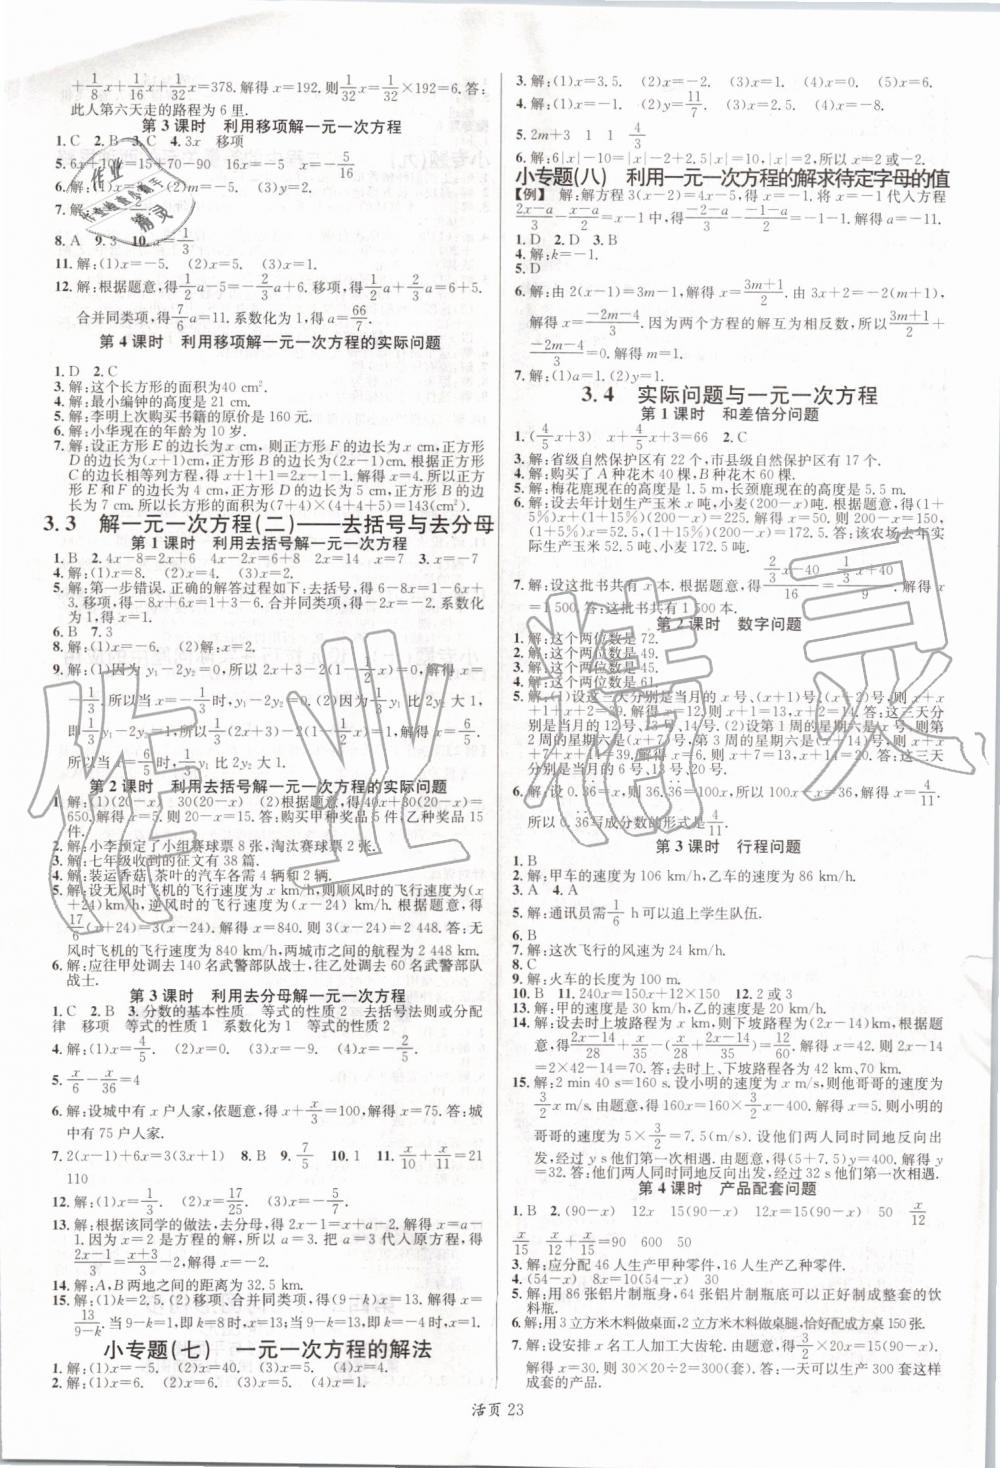 +1/8x+1/16x+1/32x=378. 解得 x=192. 则1/32x=1/32×192=6. 答:
此人第六天走的路程为 6 里.
第 3 课时 利用移项解一元一次方程
1. C 2. B 3. C 4. 3x 移项
5. 6x+10x=15+70-90 16x=-5 x=-5/16
8. A 9. 3 10. a=1/3
11. 解:(1)x=-5. (2)x=5. (3)x=-5. (4)x=3.
12. 解:根据题意,得1/2a-5=-2/3a+6. 移项,得1/2a+2/3a=6+5.
合并同类项,得7/6a=11. 系数化为 1,得 a=66/7.
第 4 课时 利用移项解一元一次方程的实际问题
1. D 2. C
3. 解:这个长方形的面积为40 cm².
4. 解:最小编钟的高度是 21 cm.
5. 解:李明上次购买书籍的原价是 160 元.
6. 解:小华现在的年龄为 10 岁.
7. 解:设正方形 E 的边长为 x cm,则正方形 F 的边长为 x cm,正方
形 D 的边长为(x+1)cm,正方形 B 的边长为(2x-1)cm. 根据正方形
C的边长相等列方程,得 x+1+1=2x-1-x. 解得 x=4. 所以正方
形 E 和 F 的边长为 4 cm,正方形 D 的边长为 5 cm,正方形 B 的边
长为 7 cm. 所以长方形的面积为(7+4)×(4+4+5)=143(cm²).
3. 3 解一元一次方程(二)——去括号与去分母
第 1 课时 利用去括号解一元一次方程
1. B 2. 4x-8=2x+6 4x-2x=6+8 2x=14 x=7 3. x=-7
4. 解:(1)x=8. (2)x=4. (3)x=2.
5. 解:第一步错误. 正确的解答过程如下:去括号,得 6-8x-6=1-9x+
3. 移项,得-8x+9x=1+3-6. 合并同类项,得 x=-2. 系数化
为 1,得 x=-2.
6. B 7. 3
8. 解:(1)x=-6. (2)解:x=-2.
9. 解:(1)因为 y₁-2y₂=0,所以 2x+3-2(1-1/2x)=0,解得 x=
-1/3. 所以当 x=-1/3时,y₁-2y₂=0. (2)因为 y₁ 比 2y₂ 大 1,
即 y₁-2y₂=1,所以(2x+3)-2(1-1/2x)=1,解得 x=0.
所以当 x=0 时,y₁ 比 2y₂ 大 1.
第 2 课时 利用去括号解一元一次方程的实际问题
1. 解:(1)(20-x) 30(20-x) (2)根据题意,得 40x+30(20-x)=
650. 解得 x=5. 则 20-x=15. 答:购买甲种奖品 5 件,乙种奖品 15
件.
2. 解:小李预定了小组赛球票 8 张,淘汰赛球票 2 张.
3. 解:七年级收到的征文有 38 篇.
4. 解:装运香菇、茶叶的汽车各需 4 辆和 2 辆.
5. 解:设无风时飞机的飞行速度为 x km/h,则顺风时飞机的飞行速度为(x
+24)km/h,逆风时飞机的飞行速度为(x-24) km/h. 根据题意,得
17/6(x+24)=3(x-24). 解得 x=840. 则 3(x-24)=2 448. 答:无
风时飞机的飞行速度为 840 km/h,两城市之间的航程为 2 448 km.
6. 解:应往甲处调去 140 名武警部队战士,往乙处调去 60 名武警部队
战士.
第 3 课时 利用去分母解一元一次方程
1. C 2. B 3. 分数的基本性质 等式的性质 2 去括号法则或分配
律 移项 等式的性质 1 系数化为 1 等式的性质 2
4. 解:(1)x=4/5. (2)x=0. (3)x=-9. (4)x=-2.
5. x/6-x/36=4
6. 解:设城中有 x 户人家,依题意,得 x+x/3=100,解得 x=75. 答:城
中有 75 户人家.
7. 2(x-1)+6x=3(3x+1) 8. B 9. 7/5 10. 1 11. x/10+x/11=21
110
12. 解:(1)x=1/3. (2)x=17/25. (3)x=-3. (4)x=-9.
13. 解:根据该同学的做法,去分母,得 2x-1=x+a-2. 解得 x=a-
1. 因为 x=2 是方程的解,所以 a=3. 把 a=3 代入原方程,得
(2x-1)/3=(x+3)/3-2. 解得 x=-2.
14. 解:A、B 两地之间的距离为 32.5 km.
15. 解:(1)k=2.5. (2)移项、合并同类项,得(9-k)x=13. 解得 x=
13/(9-k). 当 9-k=1,即 k=8时,x=13;当 9-k=13,即 k=-4 时,x=1.
小专题(七) 一元一次方程的解法
1. 解:(1)x=-5. (2)x=40. (3)x=-5. (4)x=4.
2. 解:(1)x=6. (2)x=1. (3)x=6. (4)x=-1.
3. 解:(1)x=3.5. (2)x=-2. (3)x=1. (4)x=0. (5)x=6.
4. 解:(1)x=-2. (2)y=11/7. (3)x=2.5. (4)x=-8.
5. 2m+3 1 1 4/3
6. 解:6|x|-10=|x|-2+2,5|x|=10,|x|=2,所以 x=2 或-2.
小专题(八) 利用一元一次方程的解求待定字母的值
【例】 解:解方程 3(x-2)=4x-5,得 x=-1. 将 x=-1 代入方程
(2x-a)/3-(x-a)/2=x-1 中,得(-2-a)/3-(-1-a)/2=-1-1. 解得 a=-11.
1. D 2. D 3. B
4. 解:k=-1.
5. D
6. 解:由 2(x-1)=3m-1,解得 x=(3m+1)/2. 由 3x+2=-2(m+1),
解得 x=(-2m-4)/3. 因为两个方程的解互为相反数,所以(3m+1)/2+
(-2m-4)/3=0. 解得 m=1.
7. 解:(1)a=1. (2)y=1.
3. 4 实际问题与一元一次方程
第 1 课时 和差倍分问题
1. (4/5x+3) x+4/5x+3=66 2. C
3. 解:省级自然保护区有 22 个,市县级自然保护区有 17 个.
4. 解:购买了 A 种花木 40 棵,B 种花木 60 棵.
5. 解:梅花鹿现在的高度是 1.5 m,长颈鹿现在的高度是 5.5 m.
6. 解:设去年计划生产玉米 x 吨,小麦(200-x)吨. 根据题意,得(1+
5%)x+(1+15%)(200-x)=225. 解得 x=50. 所以(1+5%)x=
52.5,(1+15%)(200-x)=172.5. 答:该农场去年实
际生产玉米 52.5 吨、小麦 172.5 吨.
7. 解:设这批书共有 x 本. 根据题意,得(2/3x-40)/16=(1/3x+40)/9. 解得 x
=1 500. 答:这批书共有 1 500 本.
第 2 课时 数字问题
1. 解:这个两位数是 72.
2. 解:这个两位数是 49.
3. 解:这个两位数是 45.
4. 解:这个两位数是 61.
5. 解:(1)设这三天分别是当月的 x 号,(x+1)号,(x+2)号. 则 x+x
+1+x+2=39. 解得 x=12. 则 x+1=13,x+2=14. 答:这三天分
别是当月的 12 号、13 号、14 号. (2)设第 1 周的星期六是 x 号,则第
2 周的星期六是(x+7)号,第 3 周的星期六是(x+14)号. 则 x+x
+7+x+14=39. 解得 x=6. 则 x+7=13,x+14=20. 答:这三天
分别是当月的 6 号、13 号、20 号.
6. 解:设 0.36=x,则 36.36=100x,所以 100x-x=36,解得 x=4/11.
所以 0.36写成分数的形式是4/11.
第 3 课时 行程问题
1. B
2. 解:甲车的速度为 106 km/h,乙车的速度为 86 km/h.
3. A 4. A
5. 解:通讯员需1/6 h 可以追上学生队伍.
6. B
7. 解:这次飞行的风速为 24 km/h.
8. C
9. 解:火车的长度为 100 m.
10. B 11. 240x=150x+12×150 12. 2 或 3
13. 解:甲的速度是 30 km/h,乙的速度是 20 km/h.
14. 解:设去时上坡路程为 x km,则下坡路程为(2x-14)km,根据题
意,得(2x-14)/28+x/35=-x/28+(2x-14)/35+12/60. 解得 x=42. 则 2x-14=
2×42-14=70. 答:去时上、下坡路程各为 42 km、70 km.
15. 解:2 min 40 s=160 s. 设小明的速度为 x m/s,则他哥哥的速度为
3/2x m/s. 由题意,得 160x=160×3/2x-400. 解得 x=5. 则小明的
哥哥的速度为 5×3/2=7.5(m/s). 设他们两人同时同地反向出
发,经过 y s他们第一次相遇. 由题意,得(5+7.5)y=400. 解得 y=
32. 答:他们两人同时同地反向出发,经过 32 s他们第一次相遇.
第 4 课时 产品配套问题
1. B 2. (90-x) 12x 15(90-x) 12x=15(90-x) 50 x/12
x/15 x/12+x/15=90 600 50
3. 解:应分配 46 人生产甲种零件,16 人生产乙种零件.
4. (54-x) 8x=10(54-x) 30
5. 解:用 86 张铝片制瓶身,64 张铝片制瓶底可以正好制成整套的饮
料瓶.
6. 解:用 3 立方米木料做桌面,2 立方米木料做桌腿,恰好配成方桌 150张.
7. 解:设安排 x 名工人加工大齿轮. 依题意,得 3×12x=2×10(50-
x). 解得 x=30. 则 30×20÷2=300(套). 答:一天可以生产 300 套这样
成套的产品.
活页 23
作业精灵